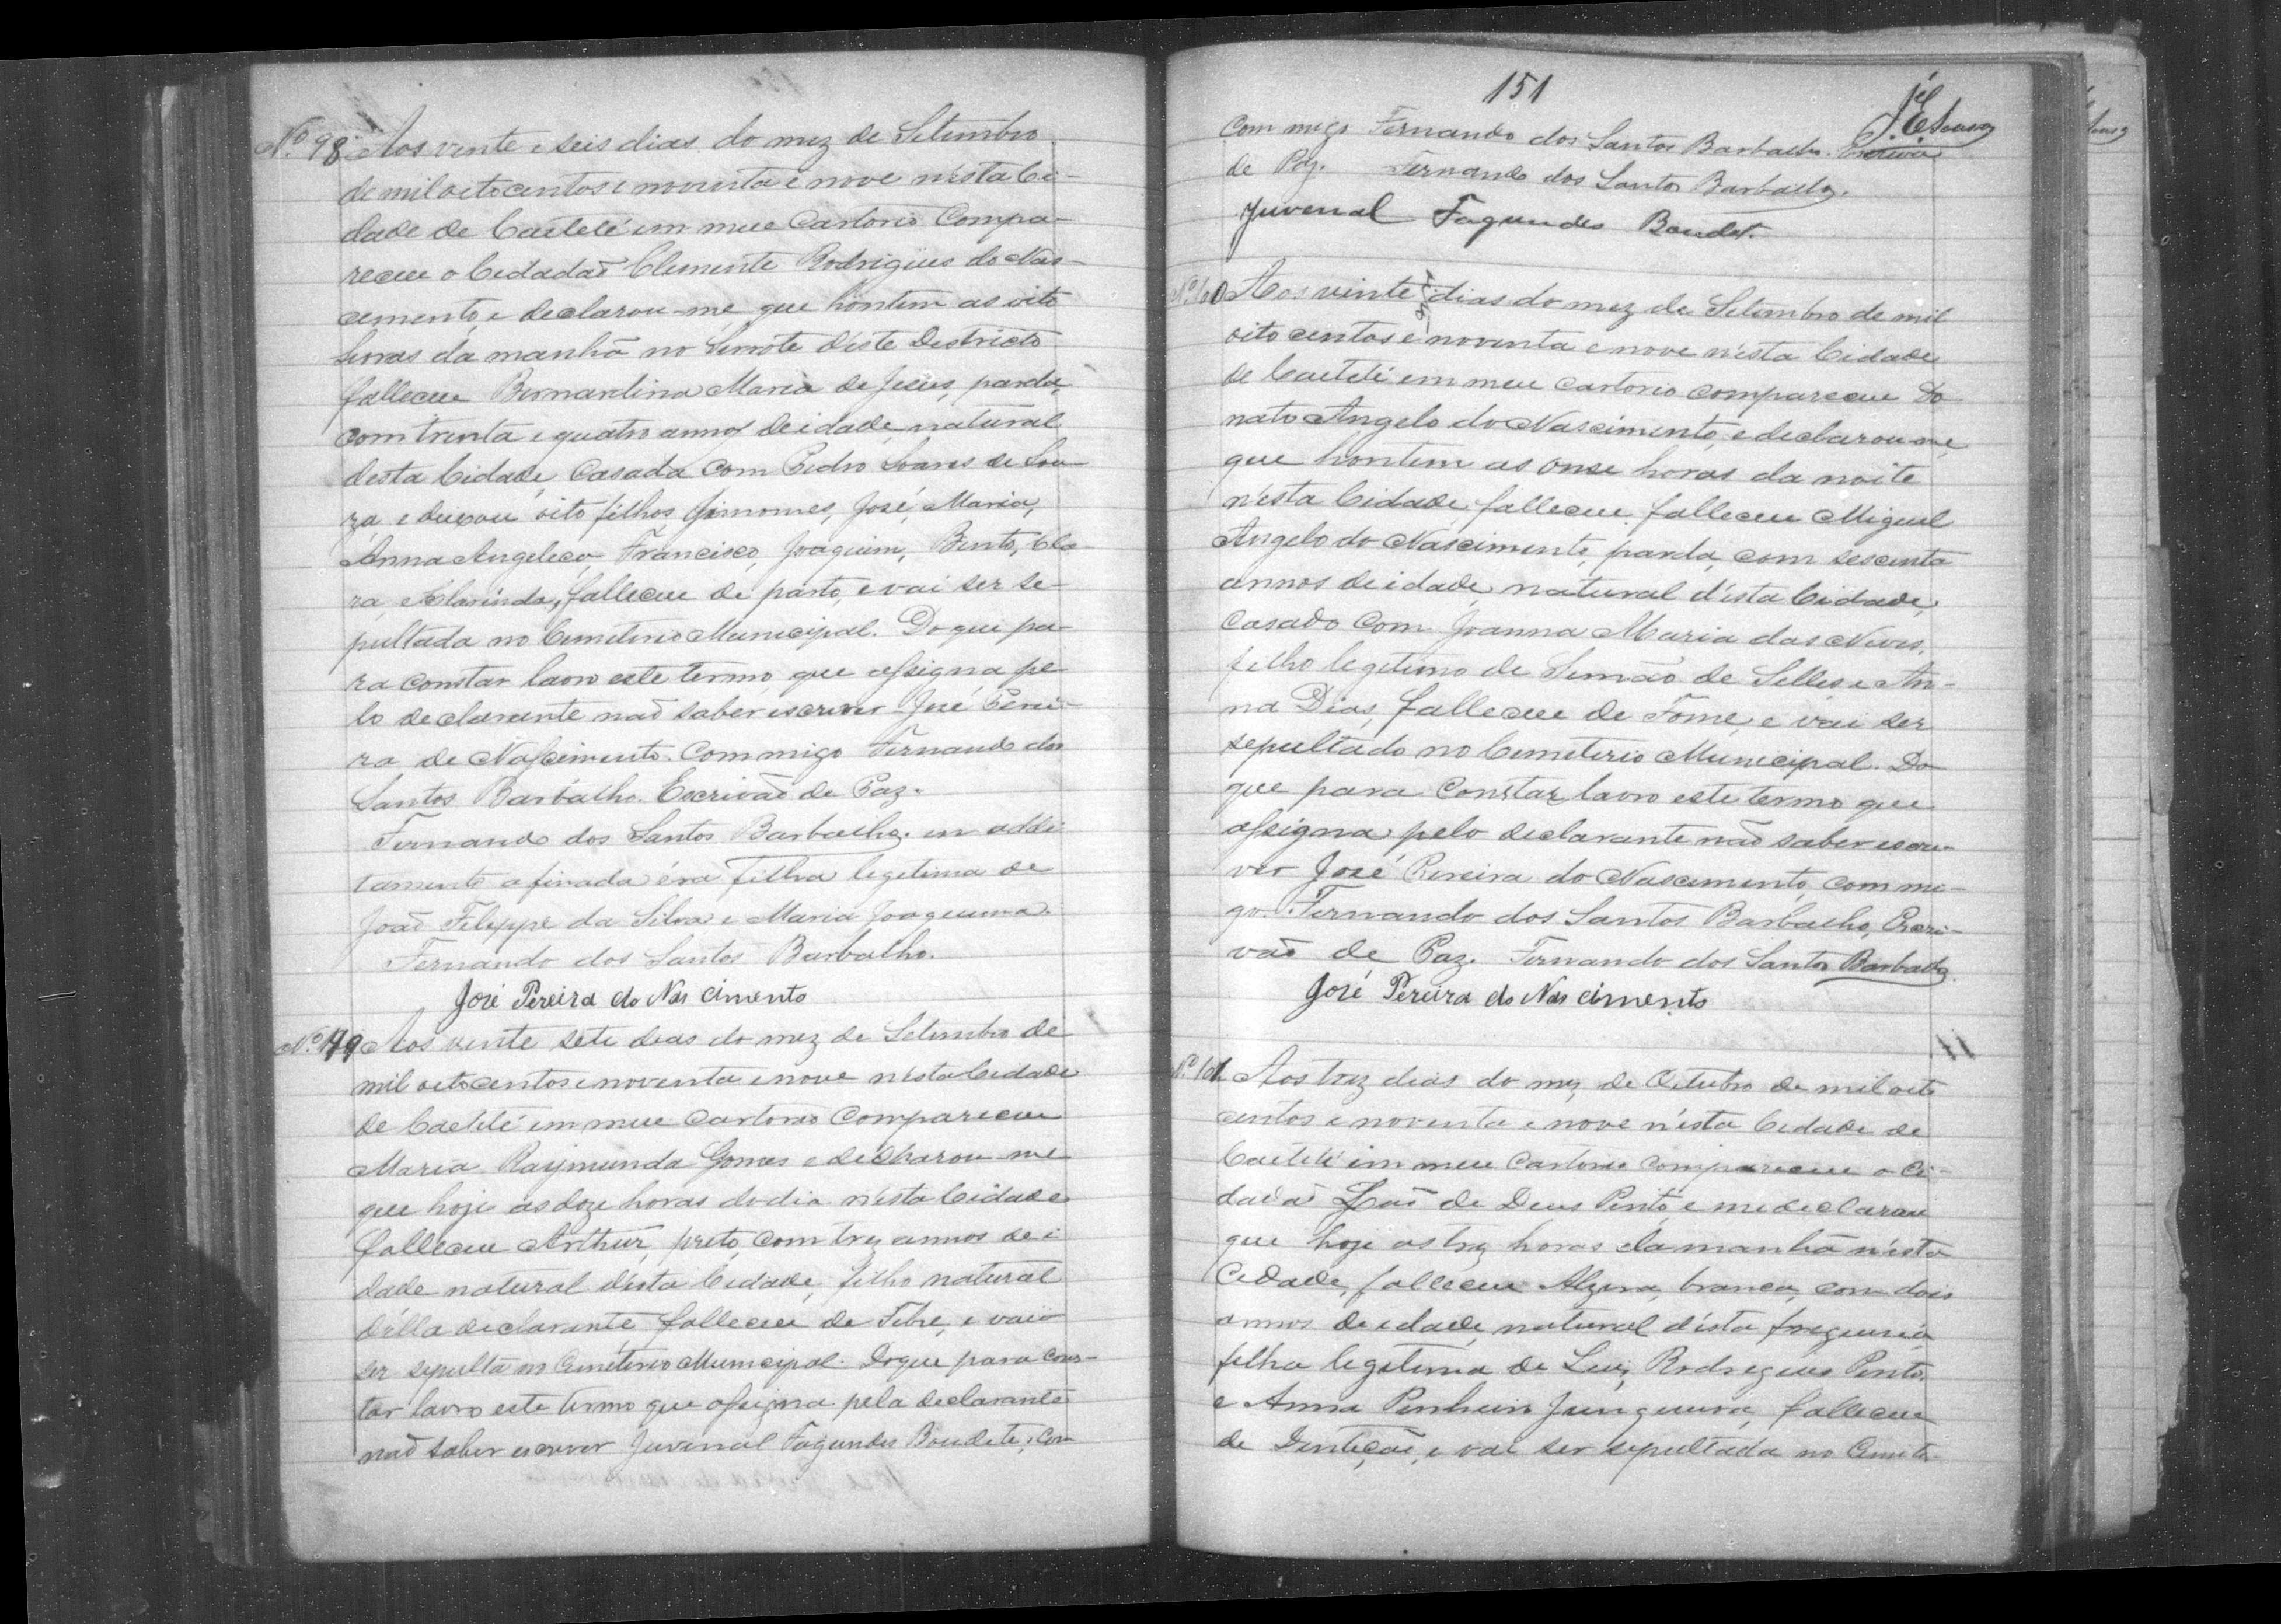 Nº 98 Aos vente e seis dias do mez de Setembro
de mil oito centos e noventa e nove n'esta Ci-
dade de Caeteté em meu Cartorio Compa-
receu o Cidadaõ Clemente Rodrigues do Nas-
cemento, e declarou-me que hontem as oito
horas da manhã no Serrote d'este Destricto
falleceu Bernardina Maria de Jesus, parda,
com trenta e quatro annos de idade, natural
desta Cidade, Casada com Pedro Soares de Sou-
za e deixou oito filhos José, Maria,
Anna Angeleca, Francisco, Joaquim, Bento, Cla-
ra, e Clarinda, falleceu de parto, e vai ser se-
pultada no Cemeterio Municipal. Do que pa-
ra constar lavro este termo, que assigna pe-
lo declarante naõ saber escrever José Perei-
ra de Nascimento. Commigo Fernando dos
Santos Barbalho. Escrivaõ de Paz.
Fernando dos Santos Barbalho. em addi-
tamento a finada éra filha legitima de
Joaõ Felippe da Silva e Maria Joaquina.
Fernando dos Santos Barbalho.
José Pereira do Nascimento
Nº 99 Aos vente sete dias do mez de Setembro de
mil oito centos e noventa e nove n'esta Cidade
de Caeteté em meu Cartorio Compareceu
Maria Raymunda Gomes e declarou-me
que hoje as doze horas do dia n'esta Cidade
falleceu Arthur, preto, com trez annos de i
dade natural d'esta Cidade, filho natural
d'ella declarante, falleceu de Febre, e vai
ser sepulta no Cemeterio Municipal. Do que para cons-
tar lavro este termo que assigna pela declarante
naõ saber escrever Juvenal Fagundes Boudete, Com
151
J. E. Souza
Com migo Fernando dos Santos Barbalho. Escrivaõ
de Paz. Fernando dos Santos Barbalho.
Juvenal Fagundes Boudet.
Nº 100 Aos vinte dias do mez de Setembro de mil
oito centos e noventa e nove n'esta Cidade
de Caeteté em meu Cartorio compareceu Do
nato Angelo do Nascimento, e declarou-me,
que hontem as onse horas da noite
n'esta Cidade, falleceu falleceu Miguel
Angelo do Nascimento, pardo, com sescenta
annos de idade, natural d'esta Cidade,
Casado Com Joanna Maria das Neves,
filho legetimo de Semão de Selles e An-
na Dias, falleceu de Fome, e vai ser
sepultado no Cemeterio Municipal. Do
que para constar lavro este termo que
assigna pelo declarante naõ saber escre-
ver José Pereira do Nascimento, com mi-
go. Fernando dos Santos Barbalho, Escri-
vaõ de Paz. Fernando dos Santos Barbalho.
José Pereira do Nascimento
Nº 101 Aos trez dias do mez de Outubro de mil oito
centos e noventa e nove n'esta Cidade de
Caeteté em meu Cartorio compareceu o Ci-
dadaõ Joaõ de Deus Pinto, e me declarou
que hoje as trez horas da manhã n'esta
Cidade, falleceu Alzira, branca, com dois
annos de edade, natural d'esta freguezia
filha legitima de Luiz Rodrigues Pinto
e Anna Pinheiro Junqueira, falleceu
de Dentição, e vai ser sepultada no Cemite-